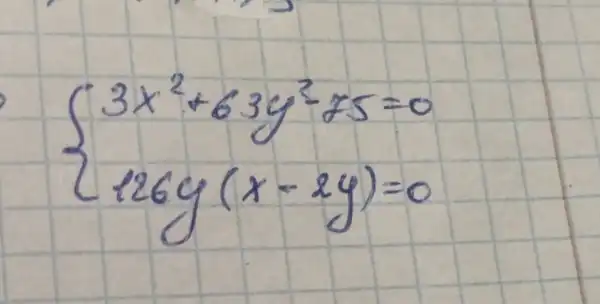 { 3x² + 63y² - 75 = 0
126y (x - 2y) = 0